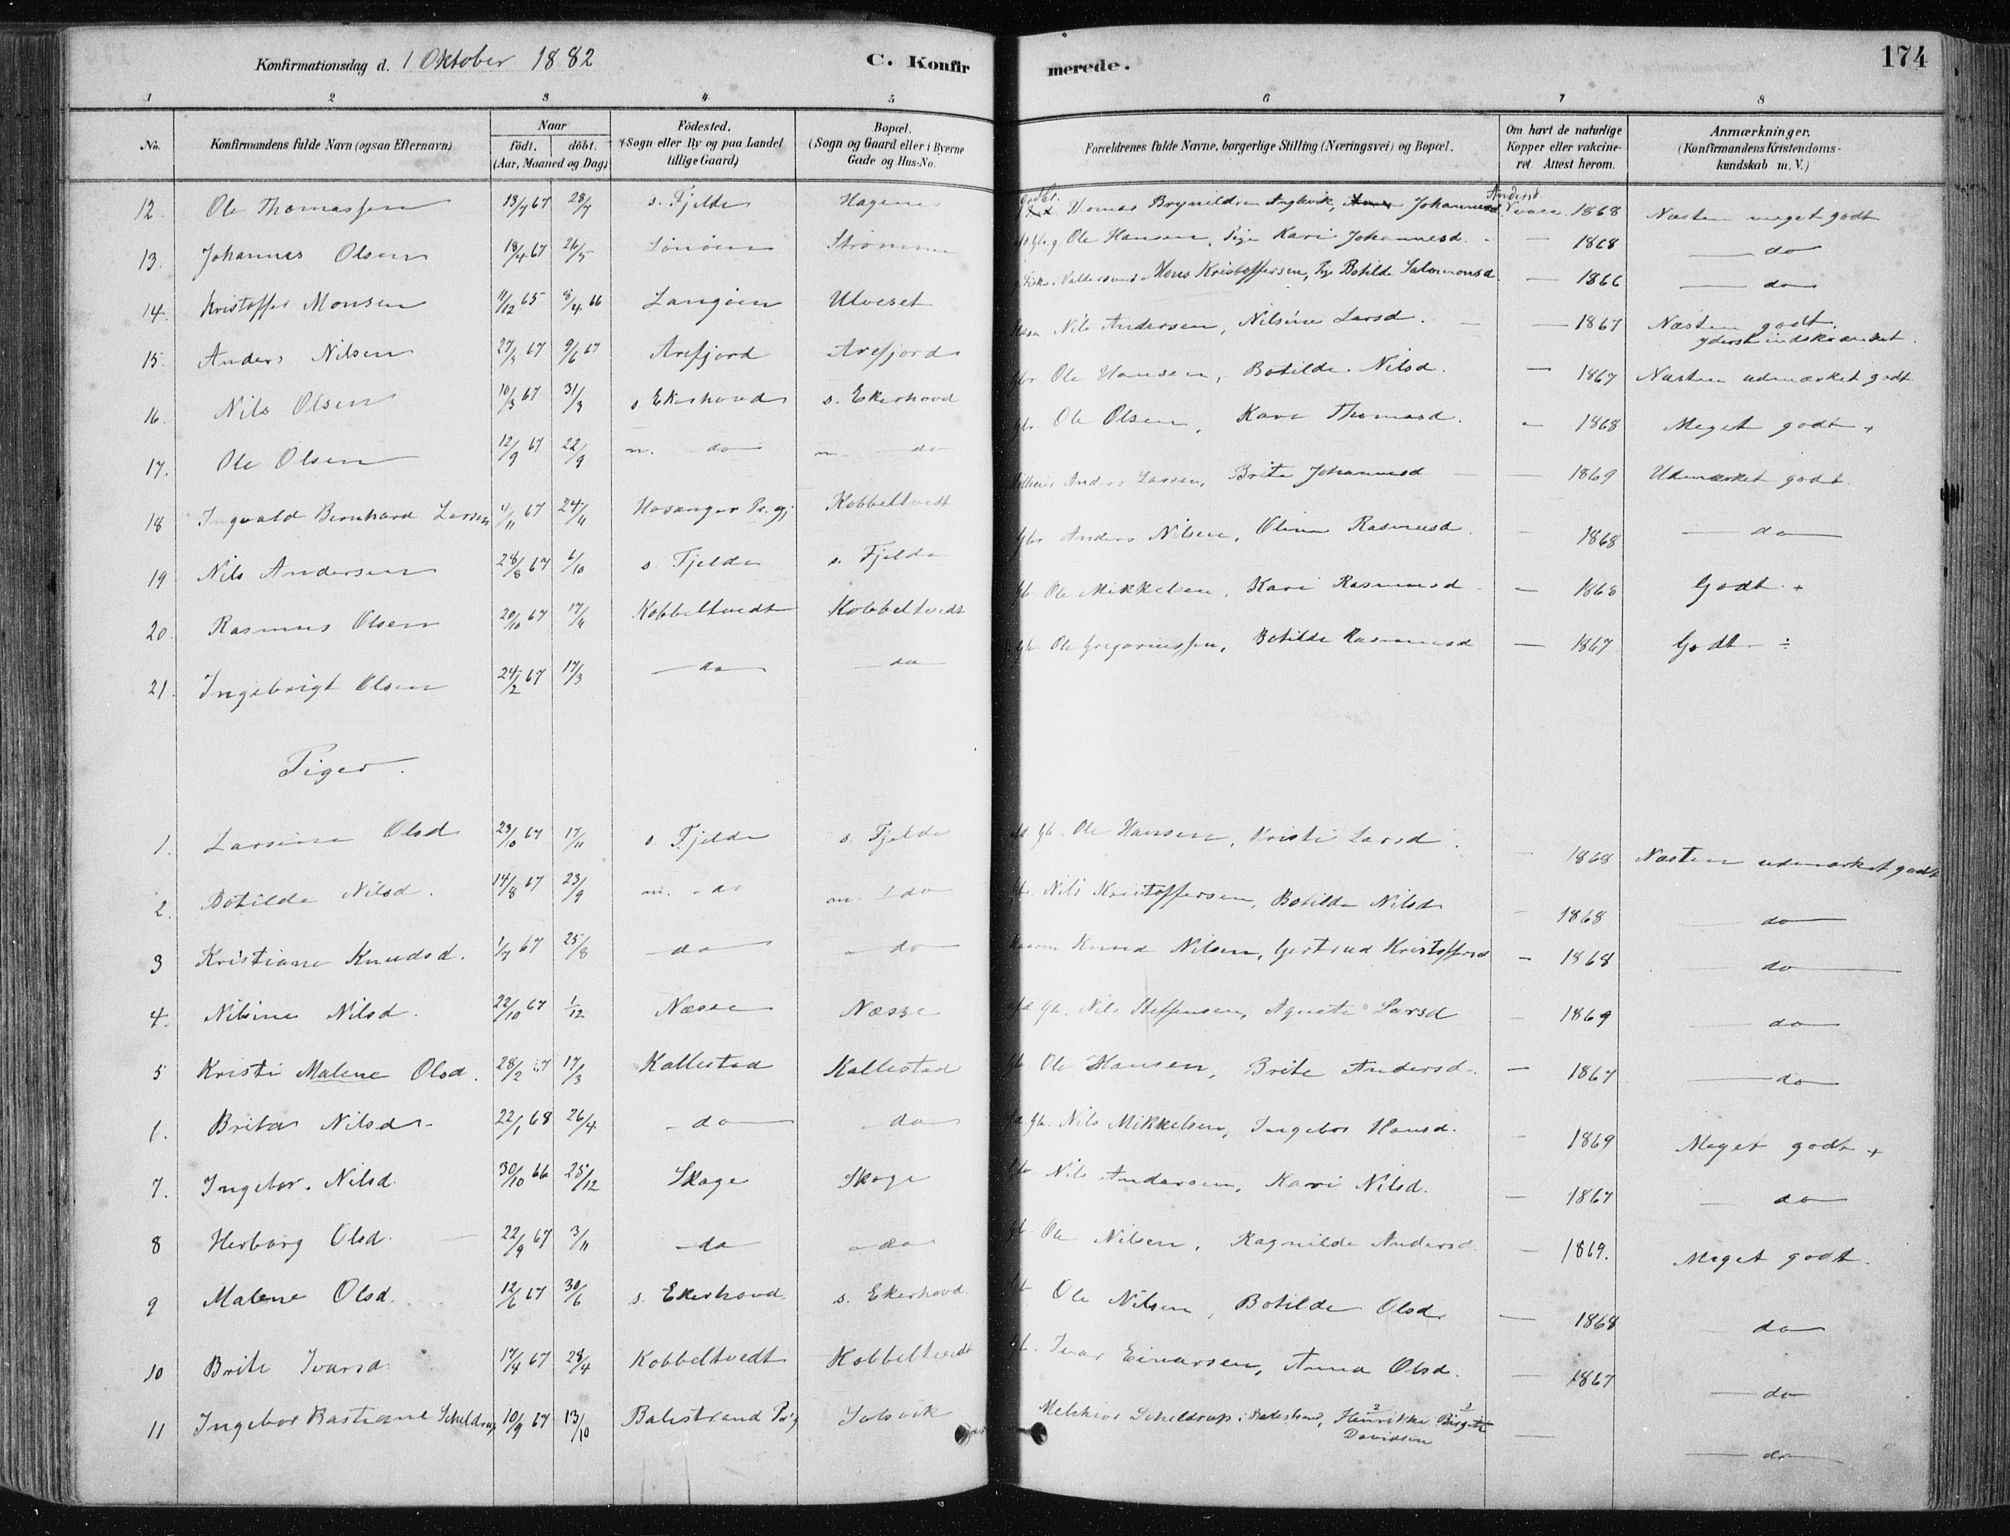 Konfirmationsdag d. 1 Oktober 1882 C. Konfirmerede. 174
1 2 3 4 5 6 7 8
No. Konfirmandens fulde Navn (ogsaa Efternavn) Naar födt. döbt. (Aar, Maaned og Dag) Födested. (Sogn eller By og paa Landet tillige Gaard) Bopæl. (Sogn og Gaard eller i Byerne Gade og Hus-No. Forældrenes fulde Navne, borgerlige Stilling (Næringsvei) og Bopæl. Om havt de naturlige Kopper eller vakcineret. Attest herom. Anmærkninger. (Konfirmandens Kristendomskundskab m. V.)
12. Ole Thomassen 13/7 67 28/7 s. Fjelde Hagenes Thomas Brynildsen Johannesd. Andersd. 1868 Næsten meget godt
13. Johannes Olsen 18/4 67 26/5 Lönöen Strömmen Ole Hansen, Pige Kari Johannesd. — 1868 — do
14. Kristoffer Monsen 11/12 65 8/4 66 Langöen Ulveset Mons Kristoffersen, Pge Botilde Salomonsd. — 1866 — do
15. Anders Nilsen 27/3 67 9/6 67 Arefjord Arefjord Nils Andersen, Nilsine Larsd. — 1867 Næsten godt. yderst indskrænket.
16. Nils Olsen 10/3 67 31/3 s Ekerhovd s. Ekerhovd Gbr Ole Hansen, Botilde Nilsd. — 1867 Næsten udmærket godt
17. Ole Olsen 12/9 67 22/9 n. — do n. — do Gbr Ole Olsen, Kari Thomasd. - 1868 Meget godt +
18 Ingvald Bernhard Larsen 4/11 67 24/11 Hosanger Pr.gj. Kobbeltvedt Anders Larsen, Brite Johannesd — 1869 Udmærket godt.
19 Nils Andersen 28/8 67 6/10 s. Fjelde s. Fjelde Gbr Anders Nilsen, Oline Rasmusd. - 1868 — do
20. Rasmus Olsen 20/10 67 17/11 Kobbeltvedt Kobbeltvedt Gb. Ole Mikkelsen, Kari Rasmusd — 1868 Godt +
21. Ingebrigt Olsen 24/2 67 17/3 — do — do Gbr. Ole Gregoriussen, Botilde Rasmusd — 1867 Godt ÷
Piger.
1. Larsine Olsd 23/10 67 17/11 s Fjelde s. Fjelde Gb. Ole Hansen, Kristi Larsd. 1868 Næsten udmærket godt
2. Botilde Nilsd. 14/8 67 23/9 m. - do m. - do Gb. Nils Kristoffersen, Botilde Nilsd - 1868 — do
3 Kristiane Knudsd. 1/7 67 25/8 — do — do Knud Nilsen, Gertrud Kristoffersd — 1868 — do
4. Nilsine Nilsd. 22/10 67 1/12 Næsse Næsse Gb. Nils Steffensen, Agnete Larsd - 1869 — do
5 Kristi Malene Olsd. 28/2 67 17/3 Kallestad Kallestad Gb Ole Hansen, Brite Andersd. — 1867 — do
6. Brita Nilsd 22/1 68 26/4 — do — do Gb. Nils Mikkelsen, Ingebor Hansd. - 1869 Meget godt +
7. Ingebor. Nilsd. 30/10 66 25/12 Skoge Skoge Gb Nils Andersen, Kari Nilsd. — 1867 — do
8 Herborg Olsd. 22/9 67 3/11 — do — do Gb Ole Nilsen, Ragnilde Andersd. — 1869. Meget godt.
9 Malene Olsd. 12/6 67 30/6 s. Ekerhovd s. Ekerhovd Ole Nilsen, Botilde Olsd. — 1868 — do
10 Brite Ivarsd. 17/4 67 28/4 Kobbeltvedt Kobbeltvedt Gb. Ivar Einarsen, Anna Olsd. — 1867 — do
11 Ingebor Bastiane Scheldrup 10/9 67 13/10 Balestrand Pr.gj Solsvik Melchior Scheldrup i Balestrand, Henrikke Birgitte Davidsen — — do